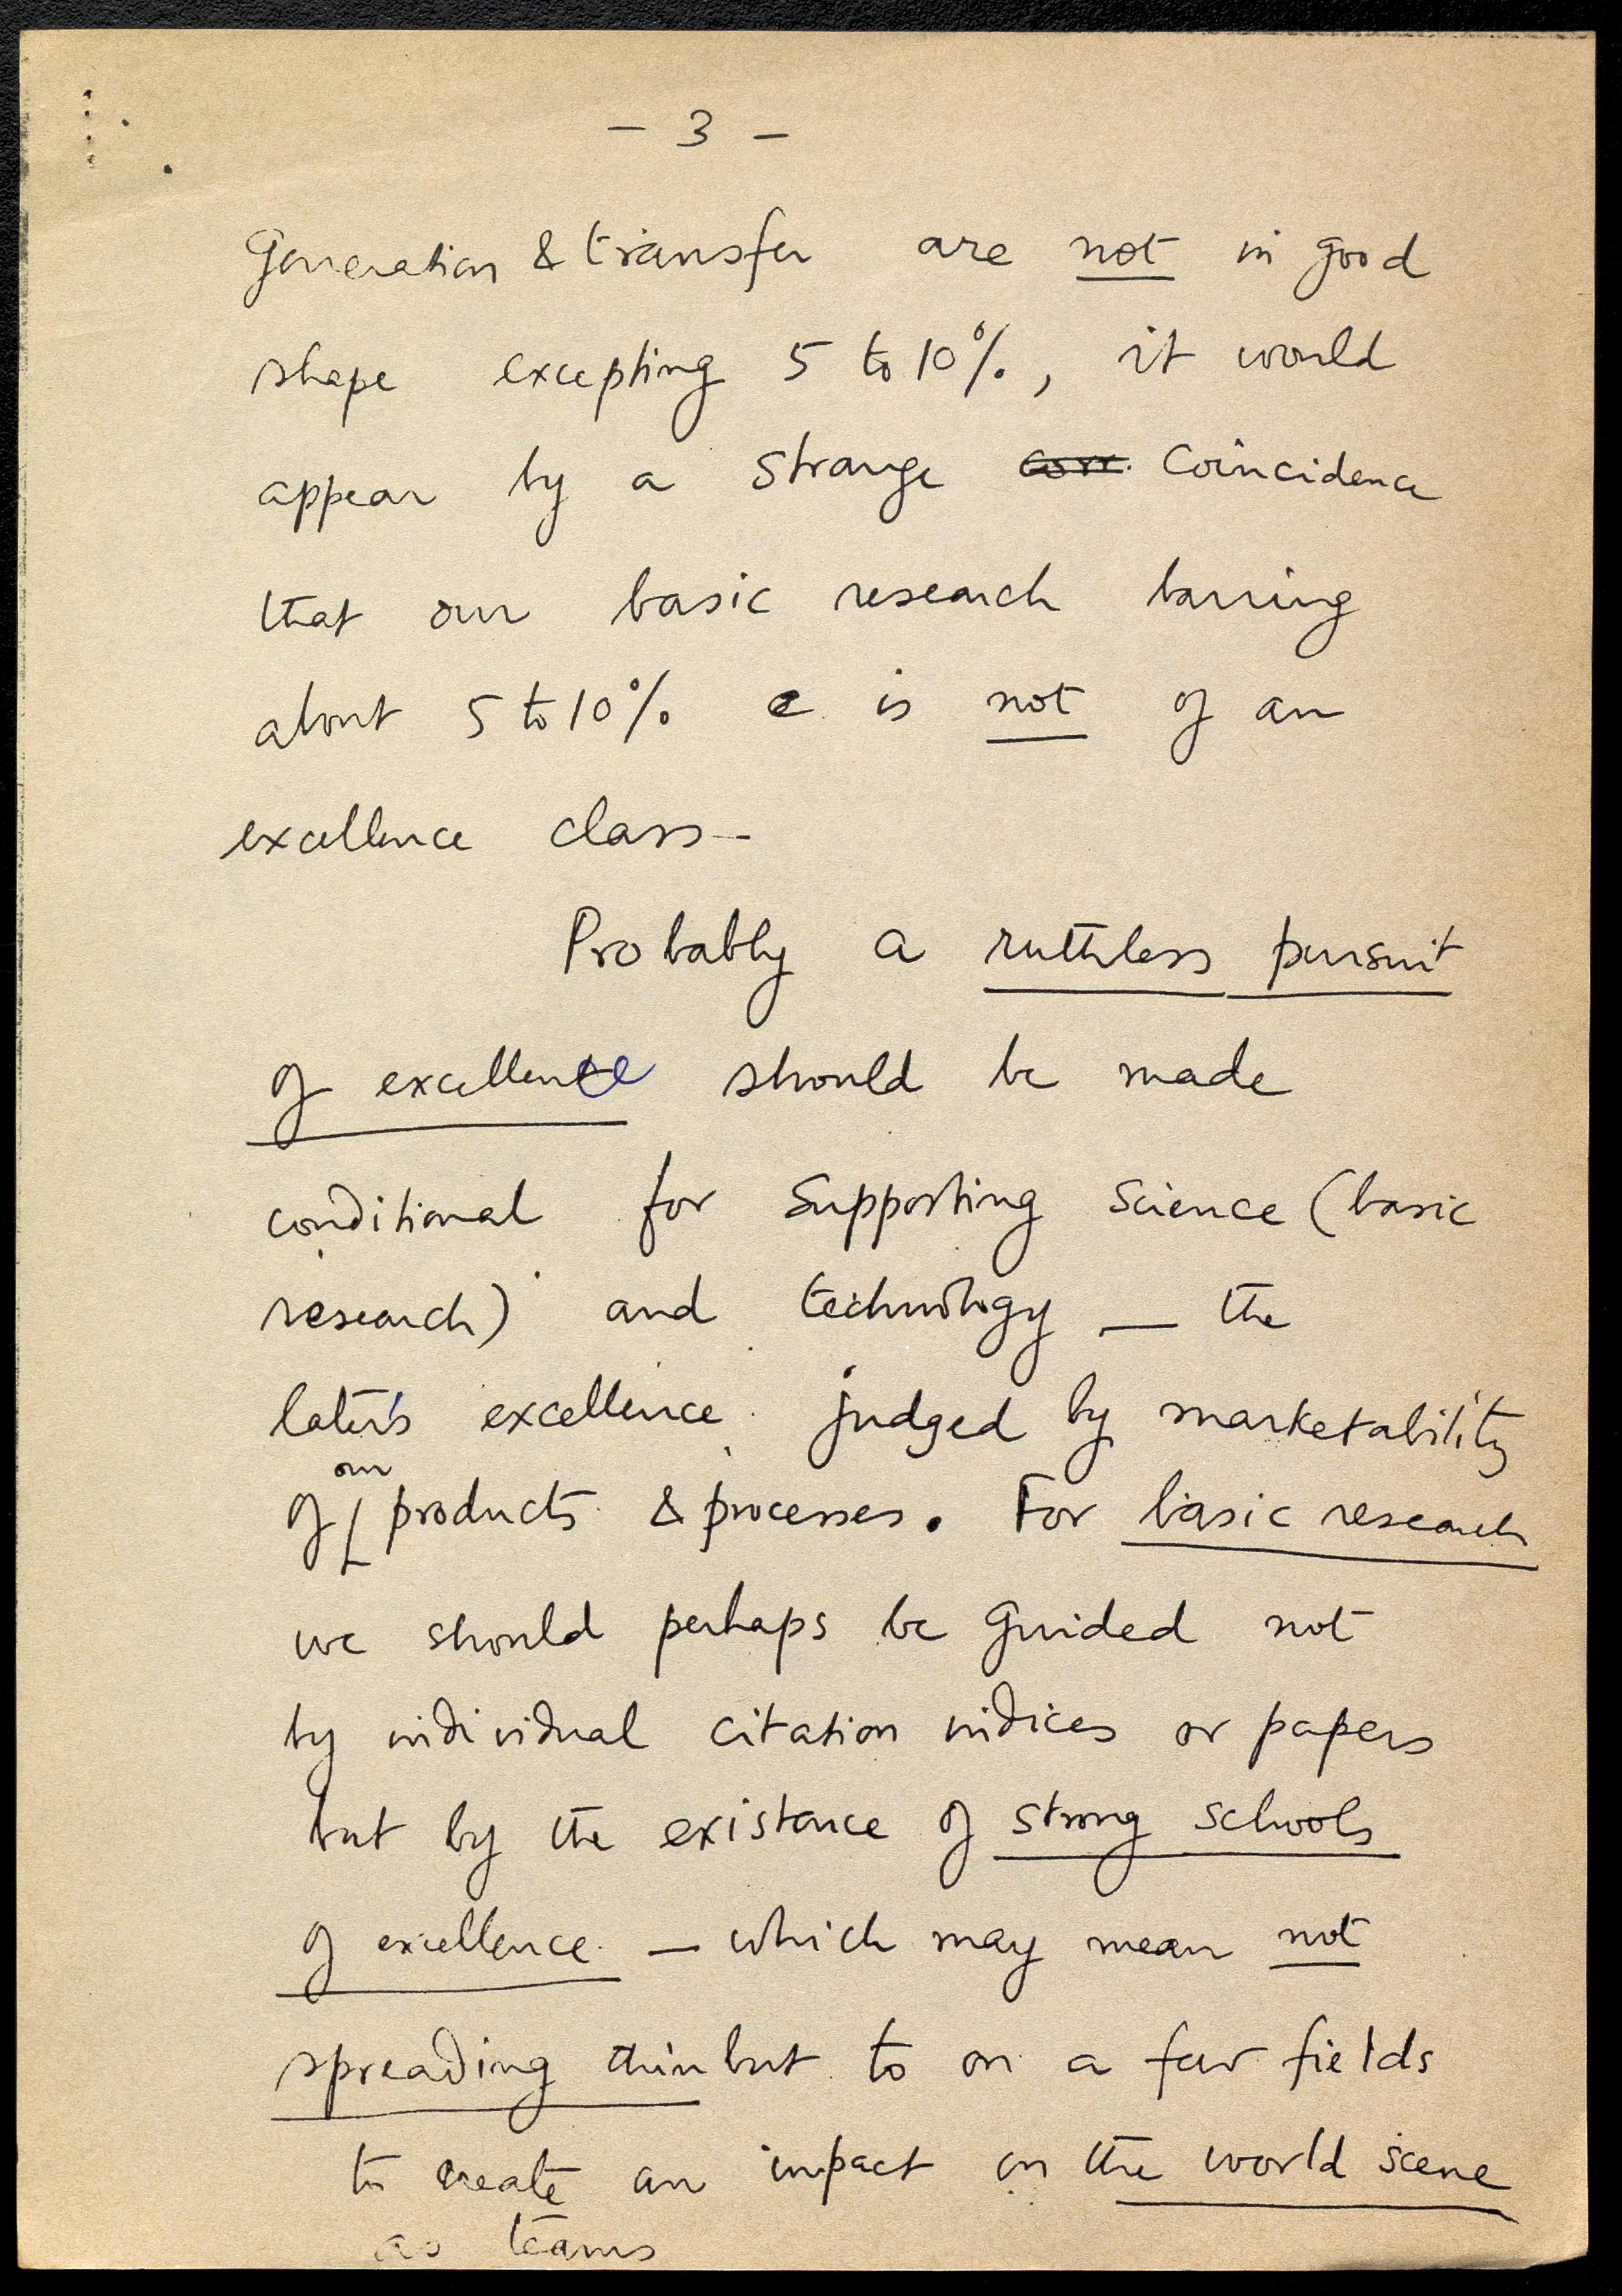 - 3 -
Generation & transfer are not in good
shape excepting 5 to 10%, it would
appear by a strange corr. coincidence
that our basic research barring
about 5 to 10% e is not of an
excellence class--
Probably a ruthless pursuit
of excellence should be made
conditional for supporting science (basic
research) and technology — the
later's excellence judged by marketability
our
of products & processes. For basic research
we should perhaps be guided not
by individual citation indices or papers
but by the existance of strong schools
of excellence — which may mean not
spreading thin but to on a few fields
to create an impact on the world scene
as teams